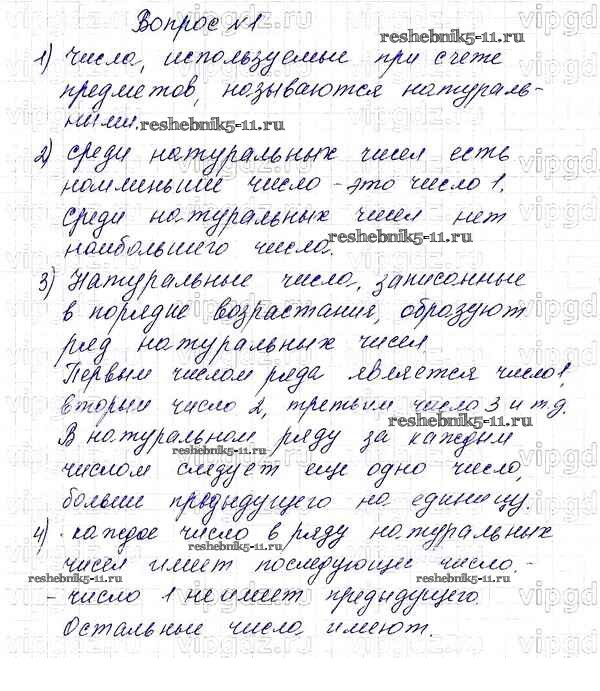 Вопрос №1
1) числа, используемые при счете
предметов, называются натураль-
ними.
2) среди натуральных чисел есть
наименьшие число - это число 1,
среди натуральных чисел нет
наибольшего числа.
3) Натуральные числа, записанные
в порядке возрастания, образуют
ряд натуральных чисел.
Первым числом ряда является число 1,
вторым число 2, третьим число 3 и т.д.
В натуральном ряду за каждым
числом следует еще одно число,
больше предыдущего на единицу.
4) · каждое число в ряду натуральных
чисел имеет последующее число. -
- число 1 не имеет предыдущего.
Остальные числа имеют.
reshebnik5-11.ru
reshebnik5-11.ru
reshebnik5-11.ru
reshebnik5-11.ru
reshebnik5-11.ru
reshebnik5-11.ru
reshebnik5-11.ru
reshebnik5-11.ru
vipgdz